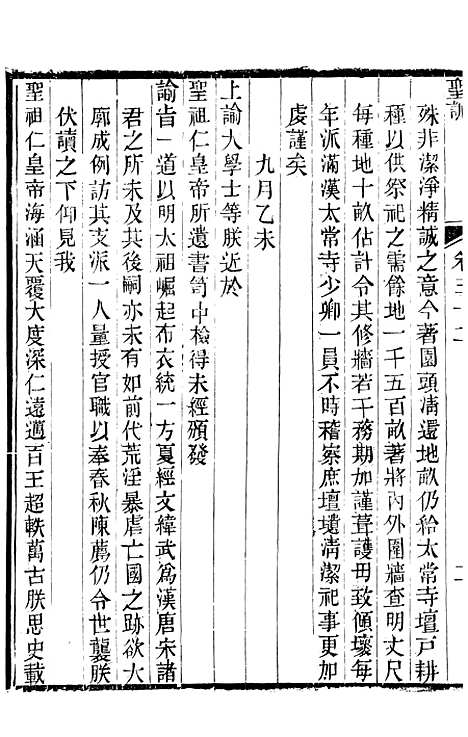 聖訓　卷三十二　二
殊非潔淨精誠之意今著園頭淸還地畝仍給太常寺壇戸耕
種以供祭祀之需餘地一千五百畝著將內外圍牆查明丈尺
每種地十畝估計令其修牆若干務期加謹葺護毋致傾壞每
年派滿漢太常寺少卿一員不時稽察庶壇壝淸潔祀事更加
虔謹矣
九月乙未
上諭大學士等朕近於
聖祖仁皇帝所遺書笥中檢得未經頒發
諭旨一道以明太祖崛起布衣統一方夏經文緯武爲漢唐宋諸
君之所未及其後嗣亦未有如前代荒淫暴虐亡國之跡欲大
廓成例訪其支派一人量授官職以奉春秋陳薦仍令世襲朕
伏讀之下仰見我
聖祖仁皇帝海涵天覆大度深仁遠邁百王超軼萬古朕思史載